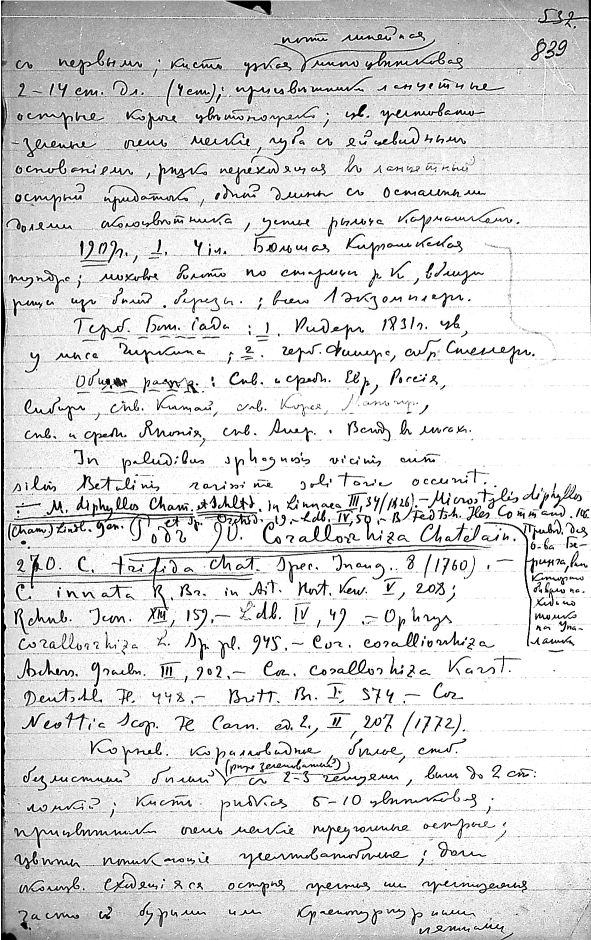 532.
839
почти линейная
съ первымъ; кисть узкая многоцвѣтковая
2–14 ст. дл. (4 ст); прицвѣтники ланцетные
острые короче цвѣтоножекъ; цв. желтовато
-зеленые очень мелкіе, губа съ яйцевиднымъ
основаніемъ, рѣзко переходящая въ ланцетный
острый придатокъ, одной длины съ остальными
долями околоцвѣтника, устье рыльца кармашкомъ.
1909 г., 1. 4 іл. Большая
тундра; моховое болото по старицѣ р. К, вблизи
рощи изъ бѣлой березы.; всего 1 экземпляръ.
Герб. Бот. Сада: 1. Ридеръ 1831 г. цв,
у мыса Чиркина; 2. герб. Фишера, собр. Стеллеръ.
Общее распр.: Сѣв. и средн. Евр, Россія,
Сибирь, сѣв. Китай, сѣв. Корея, Манчжур,
сѣв. и средн. Японія, сѣв. Амер. Всюду въ лѣсахъ.
In paludibus sphagnosis vicinis cum
silvis Betulinis rarissime solitaria occurrit.
M. diphyllos Cham. et Schltd. in Linnaea III, 34 (1828). – Microstylis diphyllos
(Cham.) Lindl. Gen. et Sp. Orchid. 19. – Ldb. IV, 50. – B. Fedtsh. Fl. Command. 116
Привод. для
о-ва Бе-
ринга,
которо
было на-
хидено
только
на Уна-
лашкѣ
Родъ 90. Corallorrhiza Chatelain.
270. C. trifida Chat. Spec. Inaug. 8 (1760). –
C. innata R. Br. in Ait. Hort. Kew. V, 209;
Rchnb. Icon. XIII, 159. – Ldb. IV, 49. – Ophrys
corallorrhiza L. Sp. pl. 945. – Cor. coralliorrhiza
Aschers. Graebn. III, 902. – Cor. corallorhiza Karst.
Deutschl. Fl. 448. – Britt. Br. I, 574. – Cor
Neottia Scop. Fl. Carn. ed. 2, II, 207 (1772).
Корнев. коралловидное бѣлое, стеб.
безлистный бѣлый (рѣже зеленоватый) съ 2–3 чешуями, выш. до 2 ст.
ломкій; кисть рѣдкая 5–10 цвѣтковая;
прицвѣтники очень мелкіе треугольные острые;
цвѣты поникающіе желтоватобѣлые; доли
околоцв. сходящіяся острыя желтыя или желтозеленыя
часто съ бурыми или краснопурпурными
пятнами,